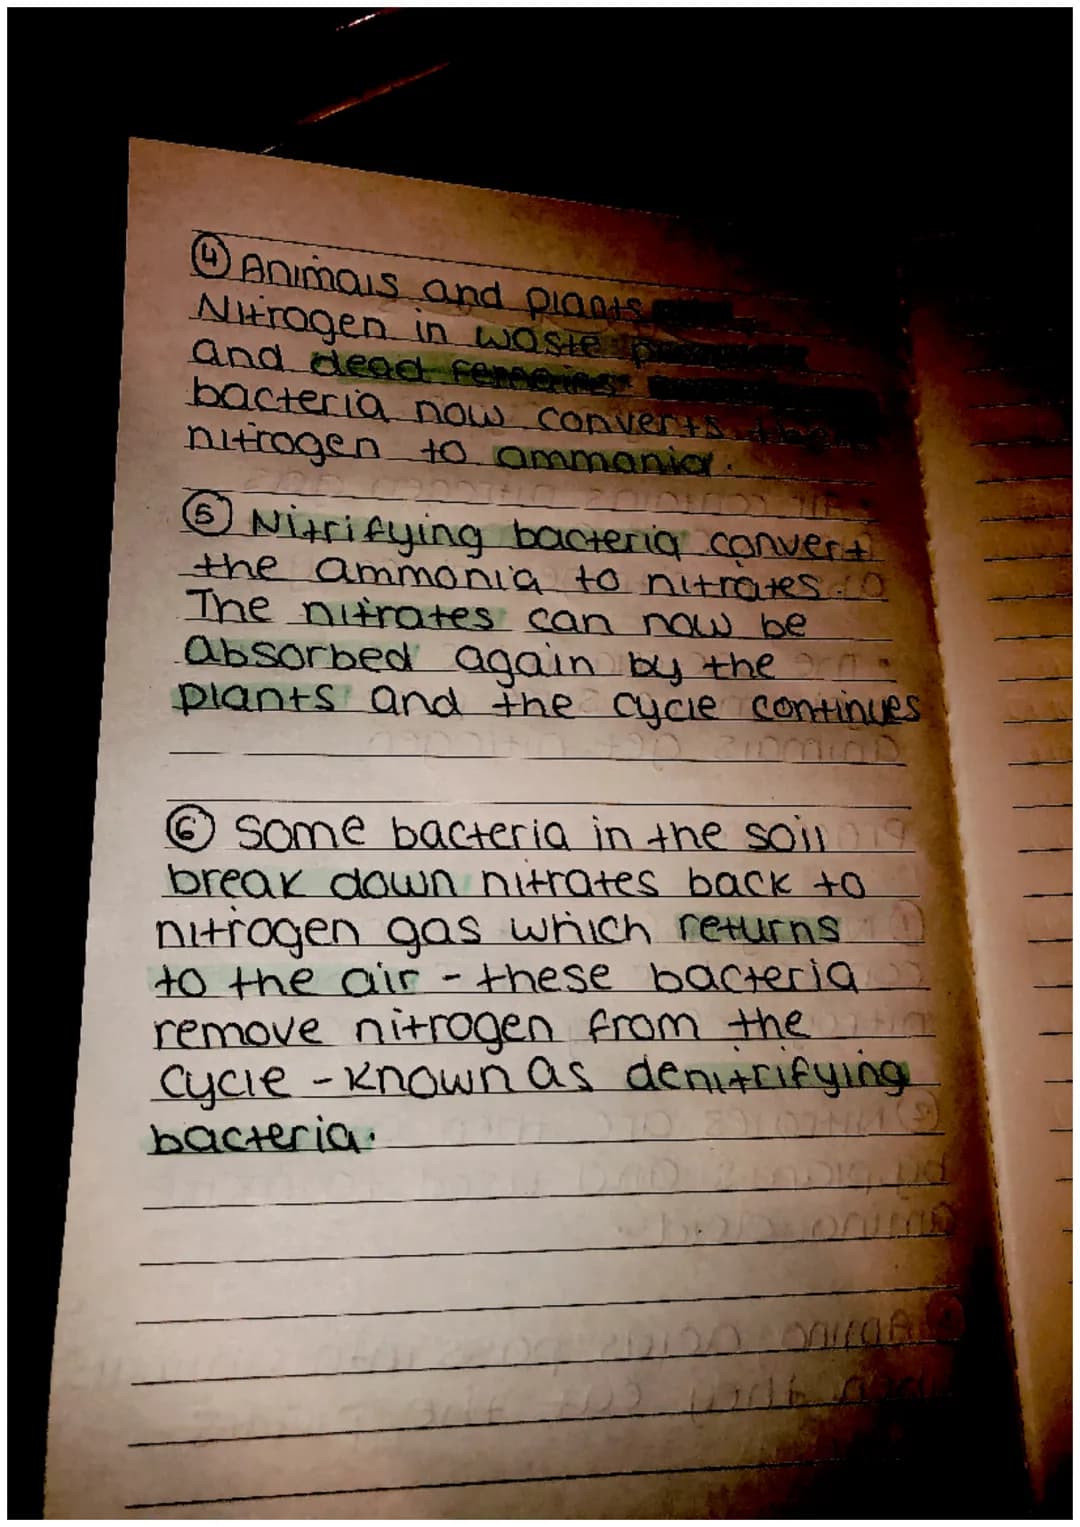 ④ Animals and plants
Nitrogen in waste
and dead remains
bacteria now converts the
nitrogen to ammonia.
⑤ Nitrifying bacteria convert
the ammonia to nitrates.
The nitrates can now be
absorbed again by the
plants and the cycle continues
⑥ Some bacteria in the soil
break down nitrates back to
nitrogen gas which returns
to the air - these bacteria
remove nitrogen from the
cycle - known as denitrifying
bacteria.